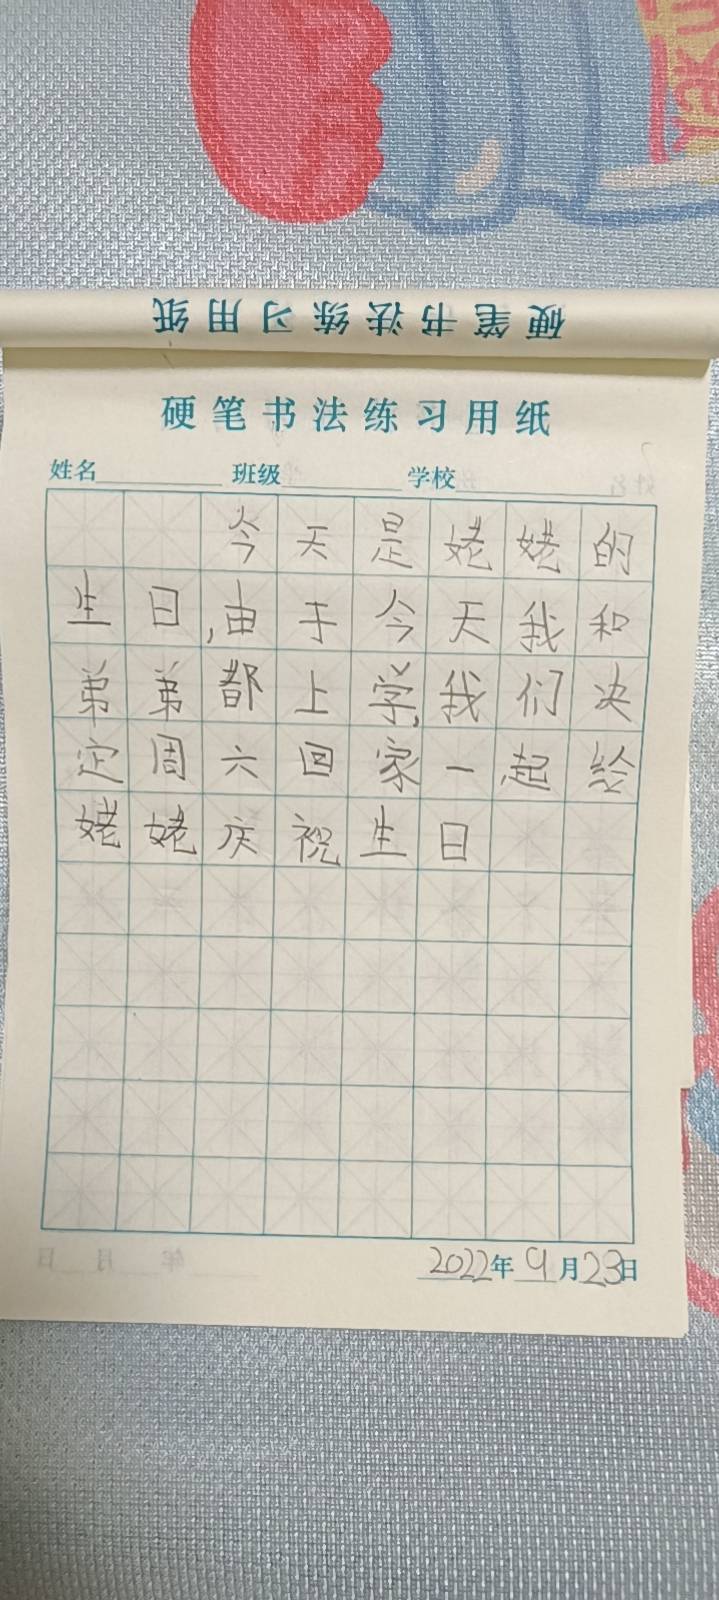 硬笔书法练习用纸
硬笔书法练习用纸
姓名 班级 学校
今天是姥姥的
生日,由于今天我和
弟弟都上学,我们决
定周六回家一起给
姥姥庆祝生日
2022年9月23日